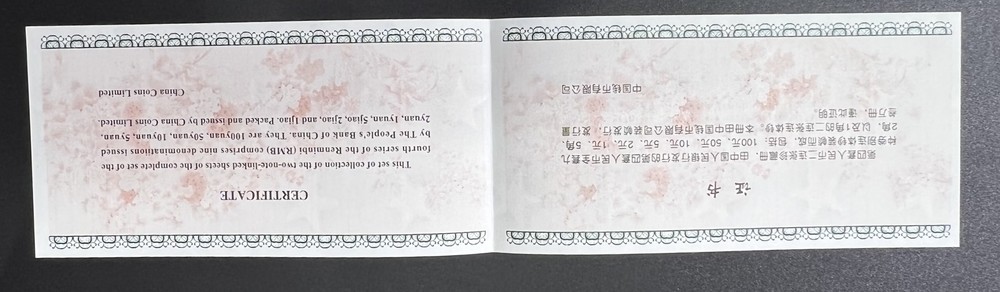 证 书
第四套人民币二连张珍藏册,由中国人民银行发行的第四套人民币全套九
种券别连体钞装帧而成,包括:100元、50元、10元、5元、2元、1元、5角、
2角、以及1角的二连张连体钞。本册由中国钱币有限公司装帧发行,发行量
叁万册,谨此证明。
中国钱币有限公司
CERTIFICATE
This set of collection of the two-note-linked sheets of the complete set of the
fourth series of the Renminbi (RMB) comprises nine denominations issued
by The People's Bank of China. They are 100yuan, 50yuan, 10yuan, 5yuan,
2yuan, 1yuan, 5jiao, 2jiao, and 1jiao. Packed and issued by China Coins Limited.
China Coins Limited